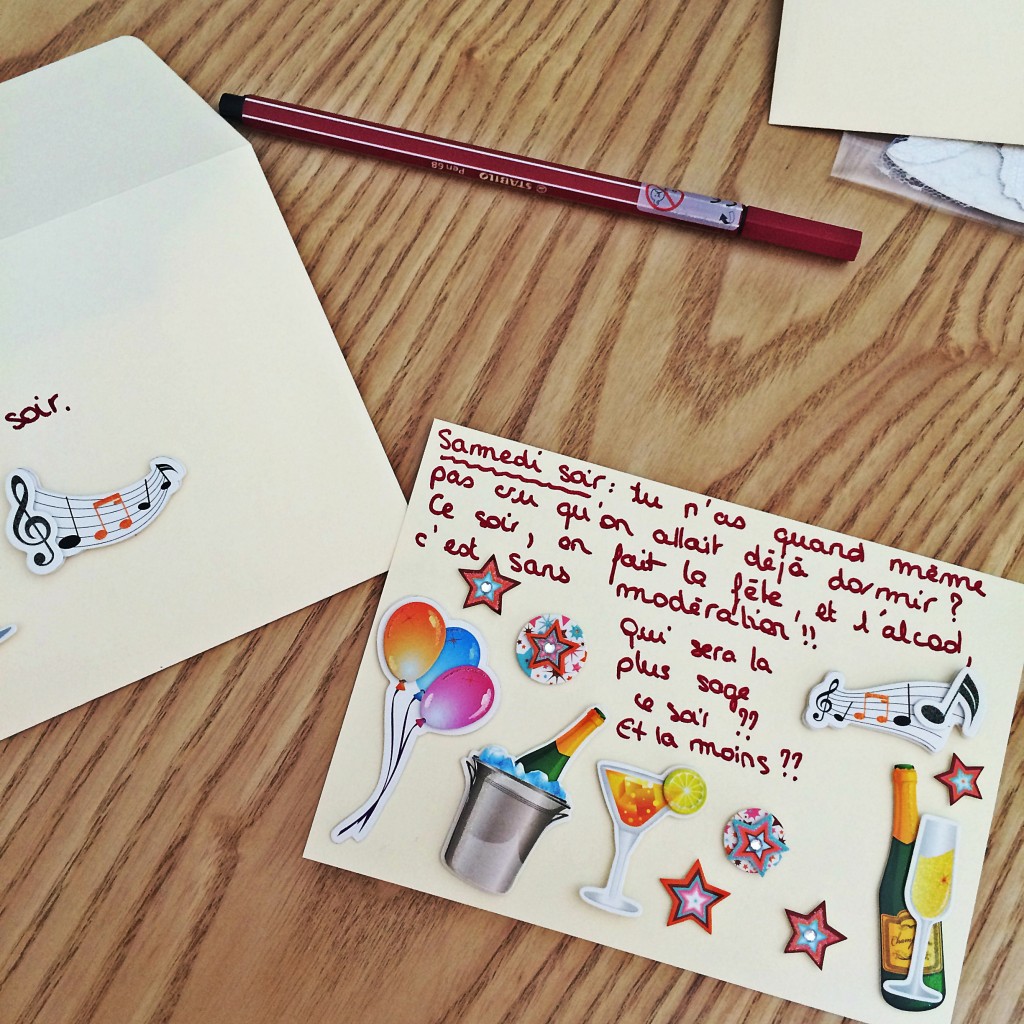 STABILO Pen 68
soir.
Samedi soir : tu n'as quand même
pas cru qu'on allait déjà dormir ?
Ce soir, on fait la fête, et l'alcool,
c'est sans modération !!
Qui sera la
plus sage
ce soir ??
Et la moins ??